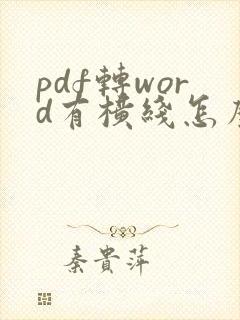 pdf轉wor
d有橫綫怎
秦貴萍